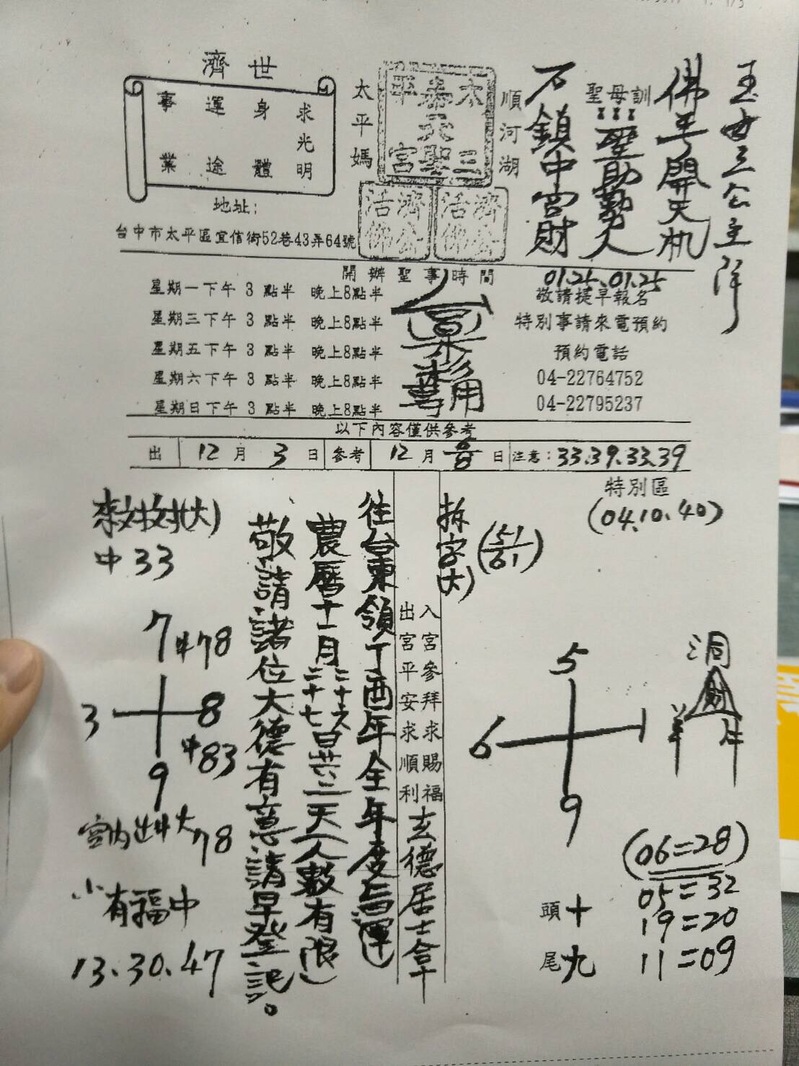 玉女三公主降
佛手開天机
聖母訓
聖助勤人
石鎮中宮財
01.25、01.25
順河湖
太嘉平
三天
聖宮
濟公活佛
濟公活佛
太平媽
濟世
求光明
身體
運途
事業
地址:
台中市太平區宜信街52巷43弄64號
開辦聖事時間
星期一下午 3 點半 晚上8點半
星期三下午 3 點半 晚上8點半
星期五下午 3 點半 晚上8點半
星期六下午 3 點半 晚上8點半
星期日下午 3 點半 晚上8點半
敬請提早報名
特別事請來電預約
預約電話
04-22764752
04-22795237
以下內容僅供參考
出 12 月 3 日 參考 12 月 日 注意:33.39.33.39
特別區
(04.10.40)
拆字(大)
(51/61)
5
6 1
9
洞
財
羊
頭十
尾九
(06=28)
05=32
19=20
11=09
入宮參拜求賜福
出宮平安求順利
玄德居士拿
往台東領丁酉年全年度吉運
農曆十一月二十六二十七日共二天(人數有限)
敬請諸位大德有意請早登記。
中33
7中78
3 8
中83
9
78
小有福中
13.30.47